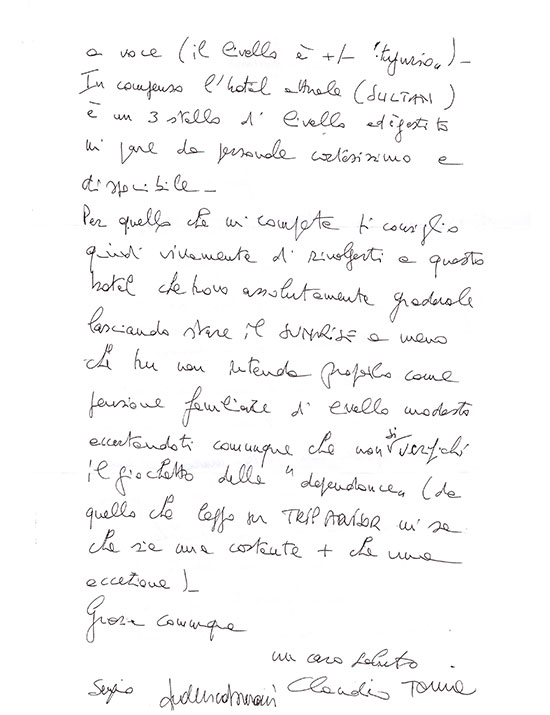 a voce (il livello è +/- "tugurio")-
In compenso l'hotel attuale (SULTAN)
è un 3 stelle di livello ed è gestito
mi pare da personale cortesissimo e
disponibile-
Per quello che mi compete ti consiglio
quindi vivamente di rivolgerti a questo
hotel che trovo assolutamente gradevole
lasciando stare il SUNRISE a meno
che tu non intenda proporlo come
pensione familiare di livello modesto
accertandoti comunque che non si verifichi
il giochetto delle "dependance" (da
quello che leggo su TRIP ADVISOR mi sa
che sia una costante + che una
eccezione)-
Grazie comunque
un caro saluto.
Sergio Claudio